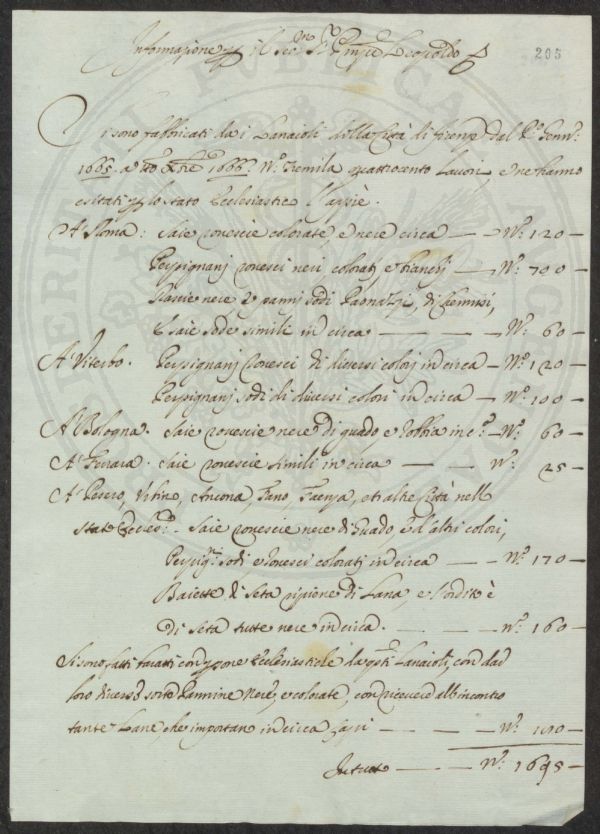 Informazione p il Ser.mo S.r Pnpe Leopoldo
205
Si sono fabbricati da i Lanaioli della Città di firenze dal p.o Genn.o
1665. a tt.o Xbre 1666. N.o Tremila quattrocento Lavori, e ne hanno
esitati p lo stato Ecclesiastico l'appiè.
A Roma: Saie rovescie colorate, e nere circa — — N.o 120 —
Perpignanj rovesci neri, colorati, e bianchj — N.o 700 —
nere e panni sodi Paonazzi, di Chermisi,
e saie sode simili in circa — — — N.o 60 —
A Viterbo. Perpignanj rovesci di diversi colorj in circa — N.o 120 —
Perpignanj sodi di diversi colori in circa — N.o 100 —
A Bologna. Saie rovescie nere di guado e robbia in c.a — N.o 60 —
A Ferrara. Saie rovescie simili in circa — — N.o 25 —
A Pesero, Urbino, Ancona, Fano, Faenza, et altre Città nell
Stato Eccles.o — Saie rovescie nere di Guado, e d'altri colori,
Perpig.ni sodi e rovesci colorati in circa — N.o 170 —
Baiette di Seta ripiene di Lana, e l'ordito è
di Seta tutte nere in circa. — — — N.o 160 —
Si sono fatti baratti con psone Ecclesiastiche da q.sti Lanaioli, con dar
loro diverse sorte Pannine Nere, e colorate, con ricevere all'incontro
tante Lane, che importan in circa — — N.o
In tutto — — — N.o 1695 —